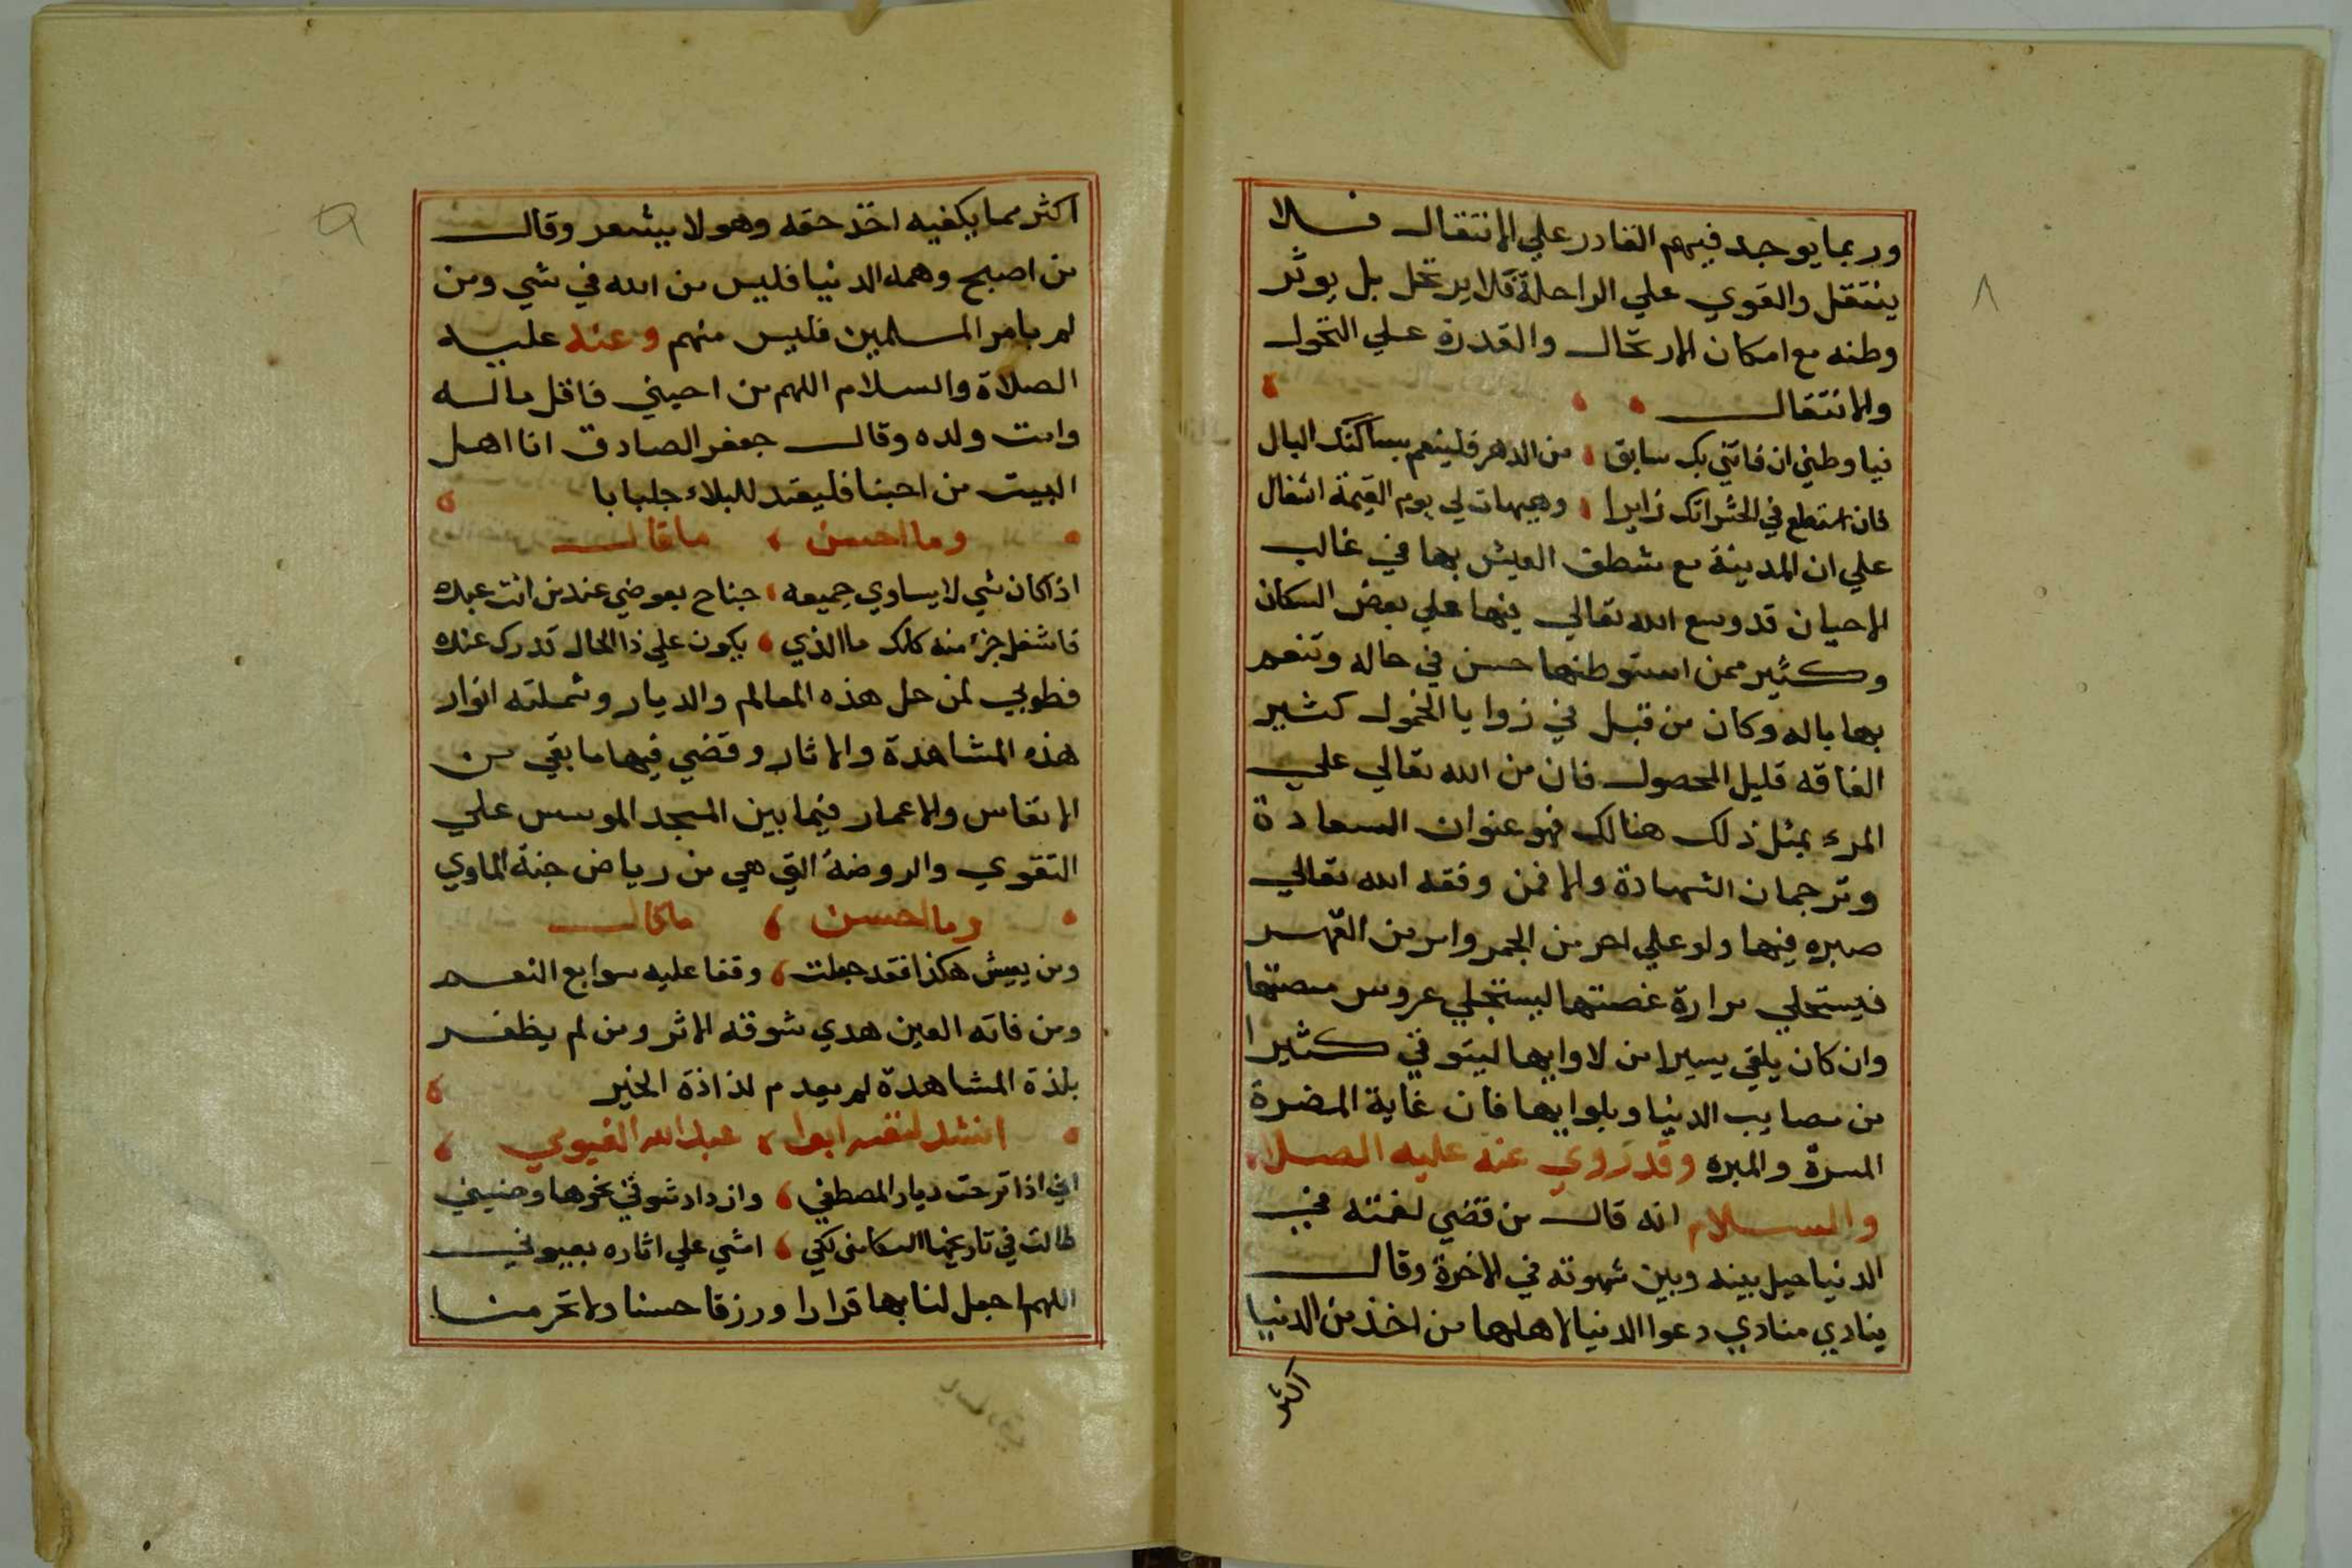 وربما يوجد فيهم القادر علي الانتقال فلا
ينتقل والقوي علي الراحلة فلا يرتحل بل يوثر
وطنه مع امكان الارتحال والقدرة علي التحول
والانتقال
فيا وطني ان فاتني بك سابق من الدهر فلينعم بساكنك البال
فان استطع في الحشر اتك زايرا وهيهات لي يوم القيمة اشغال
علي ان المدينة مع شظف العيش بها في غالب
الاحيان قد وسع الله تعالي فيها علي بعض السكان
وكثير ممن استوطنها حسن في حاله وتنعم
بها باله وكان من قبل في زوايا الخمول كثير
الفاقه قليل المحصول فان من الله تعالي علي
المرء بمثل ذلك هنالك فهو عنوان السعادة
وترجمان الشهادة والا فمن وفقه الله تعالي
صبره فيها ولو علي احر من الجمر وامر من
فيستحلي مرارة غصتها ليستجلي عروس منصتها
وان كان يلقي يسيرا من لاوايها ليتوقي كثيرا
من مصايب الدنيا وبلوايها فان غاية المضرة
المسرة والمبره وقد روي عنه عليه الصلاة
والسلام انه قال من قضي نهمته في
الدنيا حيل بينه وبين شهوته في الاخرة وقال
ينادي منادي دعوا الدنيا لاهلها من اخذ من الدنيا
اكثر
٨
اكثر مما يكفيه اخذ حتفه وهو لا يشعر وقال
من اصبح وهمه الدنيا فليس من الله في شي ومن
لم بامر المسلمين فليس منهم وعنه عليه
الصلاة والسلام اللهم من احبني فاقل ماله
وامت ولده وقال جعفر الصادق انا اهل
البيت من احبنا فليعتد للبلاء جلبابا
وما احسن ما قال
اذا كان شي لا يساوي جميعه جناح بعوض عند من انت عبده
فاشغل جزء منه كلك ما الذي يكون علي ذا الحال قدرك عنده
فطوبي لمن حل هذه المعالم والديار وشملته انوار
هذه المشاهدة والاثار وقضي فيها ما بقي من
الانفاس والاعمار فيما بين المسجد الموسس علي
التقوي والروضة التي هي من رياض جنة الماوي
وما احسن ما قال
ومن يعيش هكذا فقد جعلت وقفا عليه سوابغ النعم
ومن فاته العين هدي شوقه الاثر ومن لم يظفر
بلذة المشاهدة لم يعدم لذاذة الخبر
انشد لنفسه ابوا عبد الله الفيومي
اني اذا ترحت ديار المصطفي وازداد شوقي نحوها وحنيني
طالت في تاريخها السامي لكي امشي علي اثاره بعيوني
اللهم اجعل لنا بها قرارا ورزقا حسنا ولا تحرمنا
٩